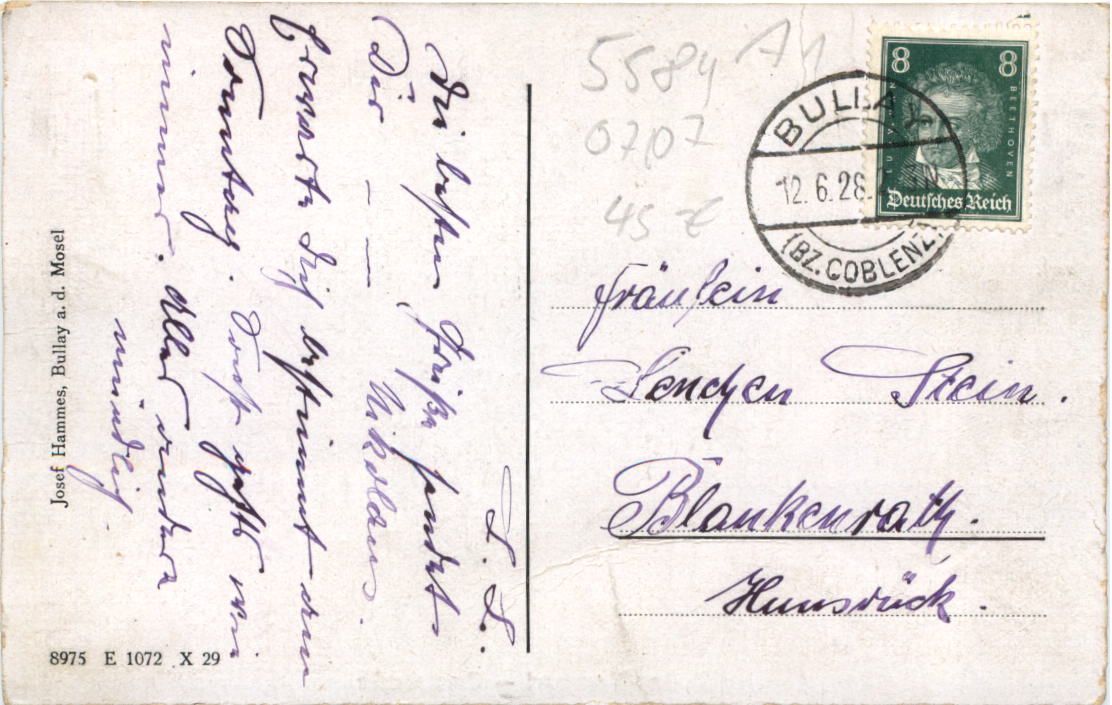 L. L.
Die besten Grüße sendet
Dir – – Nikolaus.
Erwarte Dich bestimmt am
Sonntag. Sonst geht's wie
immer. Alles andere
mündlich.
5584 A
0707
45 €
8 8
BEETHOVEN
Deutsches Reich
BULLAY
12. 6. 28.
(BZ. COBLENZ)
Fräulein
Lenchen Stein.
Blankenrath.
Hunsrück.
Josef Hammes, Bullay a. d. Mosel
8975 E 1072 X 29